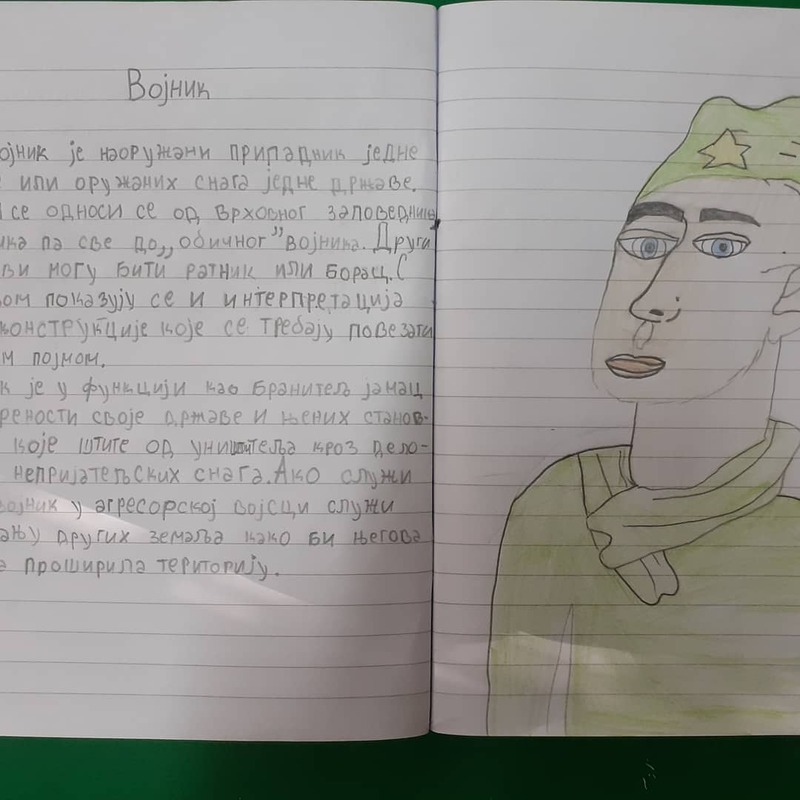 Војник
ојник је наоружани припадник једне
е или оружаних снага једне државе.
се односи се од врховног заповедника
ика па све до „обичног” војника. Други
ви могу бити ратник или борац. С
ом показују се и интерпретација
конструкције које се требају повезати
м појмом.
к је у функцији као бранитељ јамац
рености своје државе и њених станов-
које штите од уништеља кроз дело-
непријатељских снага. Ако служи
војник у агресорској војсци служи
ању других земаља како би његова
а проширила територију.